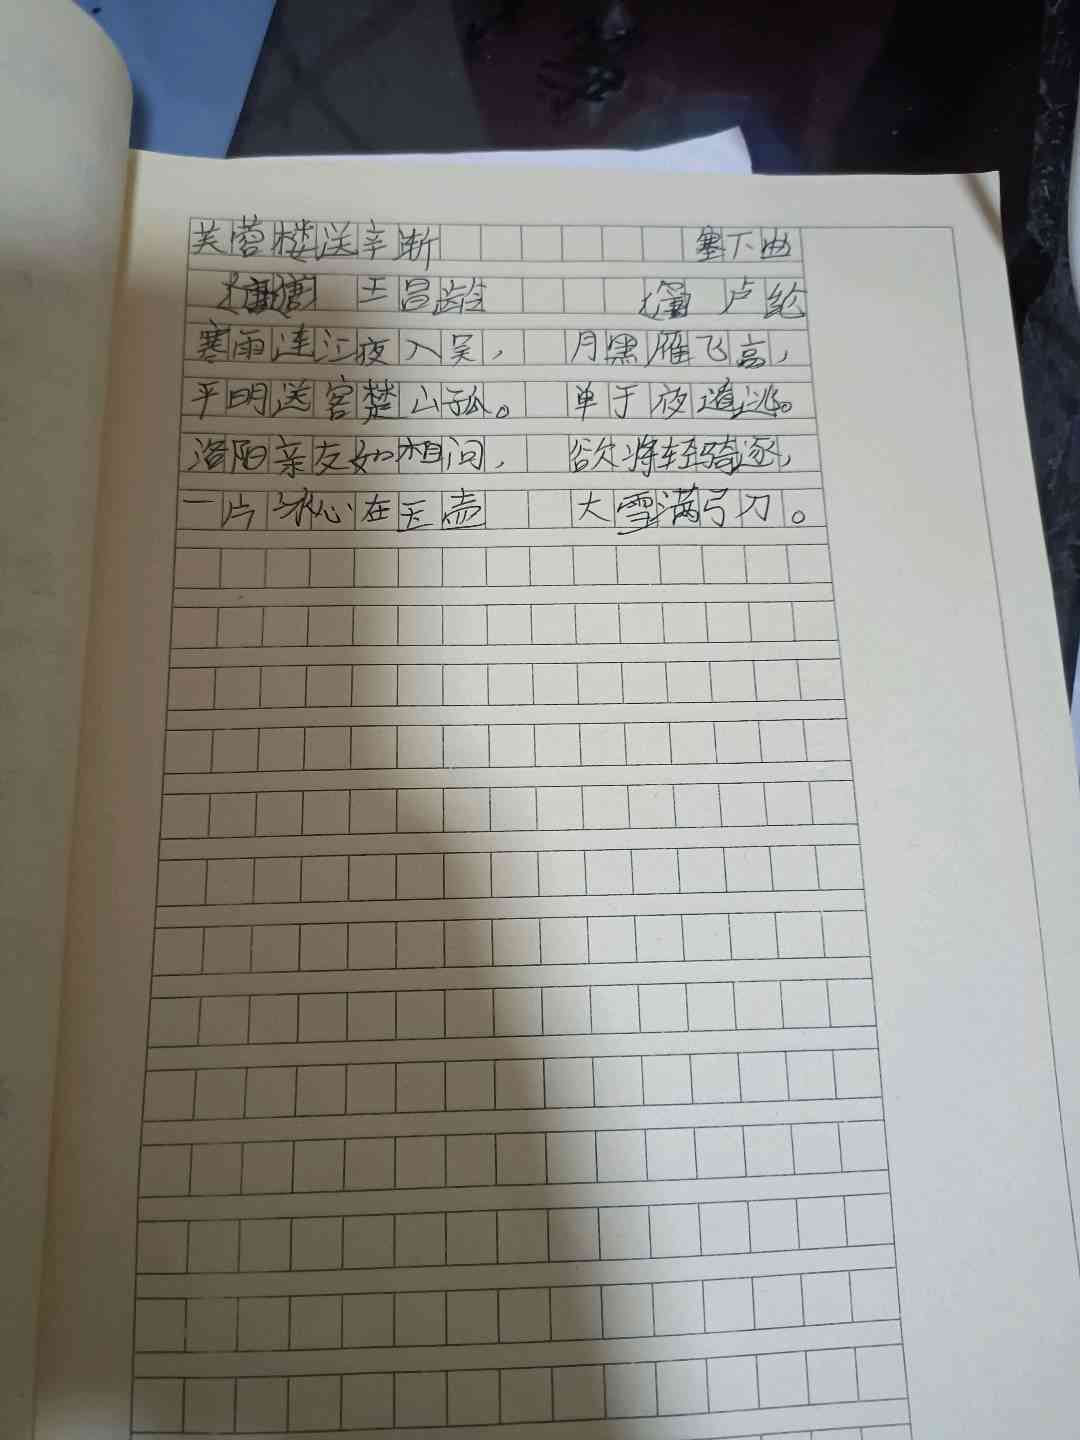 芙蓉楼送辛渐 塞下曲
王昌龄 卢纶
寒雨连江夜入吴， 月黑雁飞高，
平明送客楚山孤。 单于夜遁逃。
洛阳亲友如相问， 欲将轻骑逐，
一片冰心在玉壶 大雪满弓刀。